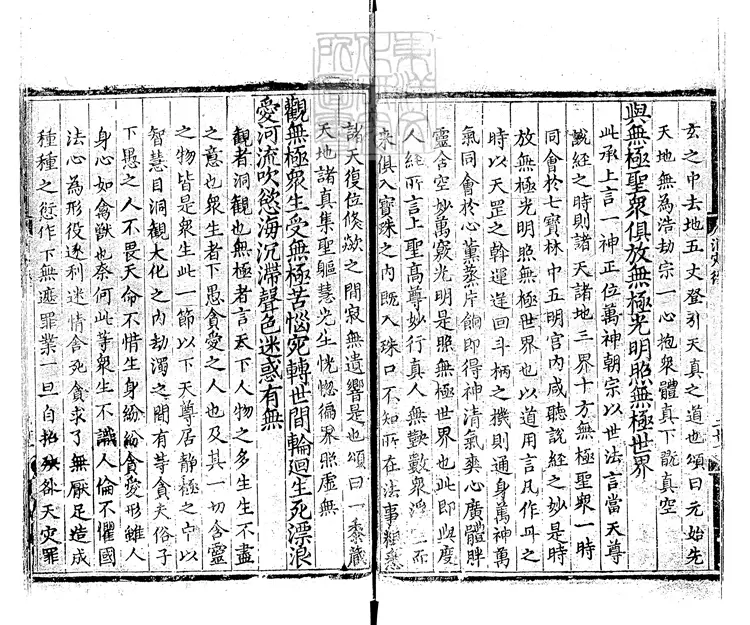 玄之中去地五丈登引天真之道也頌曰元始先
天地無為浩劫宗一心抱衆體真下既真空
與無極聖衆俱放無極光明照無極世界
此承上言一神正位萬神朝宗以世法言當天尊
說經之時則諸天諸地三界十方無極聖衆一時
同會於七寳林中五明宫内咸聽說經之妙是時
放無極光明照無極世界也以道用言凡作丹之
時以天罡之斡運逆回斗柄之機則通身萬神萬
氣同會於心薰蒸片餉即得神清氣爽心廣體胖
靈含空妙萬竅光明是照無極世界也此即與度
人經所言上聖高尊妙行真人無鞅數衆浮而
來俱入寳珠之内既入珠口不知所在法事經悉
諸天復位倐欻之間寂無遺響是也頌曰一黍藏
天地諸真集聖軀慧光生恍惚徧界照虛無
觀無極衆生受無極苦惱宛轉世間輪廻生死漂浪
愛河流吹慾海沉滯聲色迷惑有無
觀者洞觀也無極者言天下人物之多生生不盡
之意也衆生者下愚貪愛之人也及其一切含靈
之物皆是衆生此一節以下天尊居靜極之中以
智慧目洞觀大化之内劫濁之間有等貪夫俗子
下愚之人不畏天命不惜生身紛紛貪愛形雖人
身心如禽獸也奈何此等衆生不識人倫不懼國
法心為形役逐利迷情舍死貪求了無厭足造成
種種之愆作下無邊罪業一旦自招殃咎天灾罪